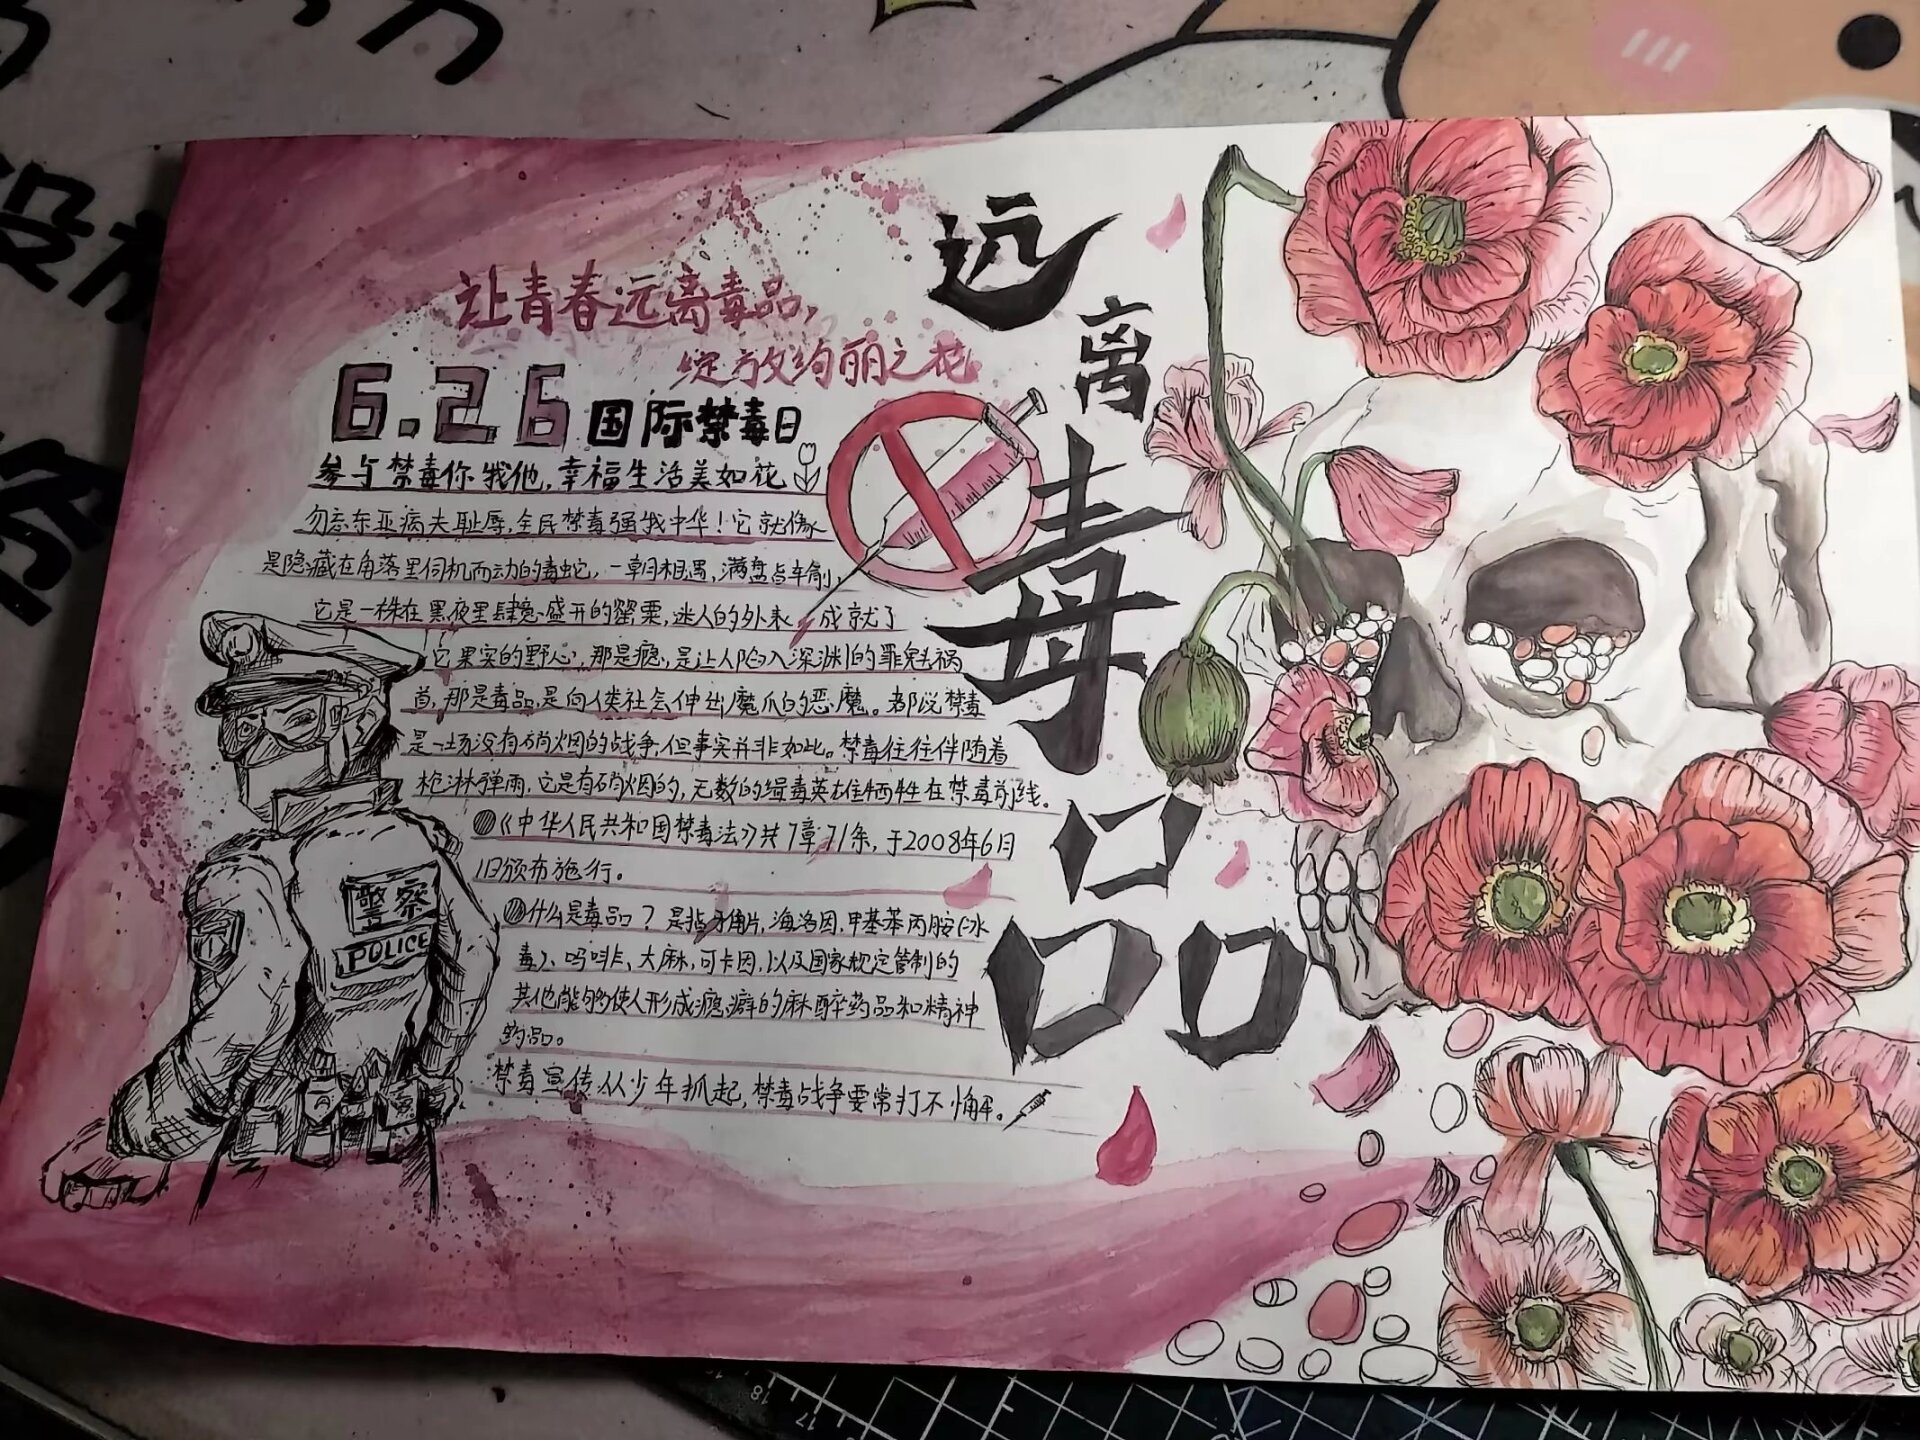 让青春远离毒品，
绽放绚丽之花
远离毒品
6.26国际禁毒日
参与禁毒你我他，幸福生活美如花
勿忘东亚病夫耻辱，全民禁毒强我中华！它就像
是隐藏在角落里伺机而动的毒蛇，一朝相遇，满盘皆输，
它是一株在黑夜里肆意盛开的罂粟，迷人的外表，成就了
它果实的野心，那是瘾，是让人陷入深渊的罪魁祸
首，那是毒品，是向人类社会伸出魔爪的恶魔。都说禁毒
是一场没有硝烟的战争，但事实并非如此。禁毒往往伴随着
枪淋弹雨，它是有硝烟的，无数的缉毒英雄牺牲在禁毒前线。
《中华人民共和国禁毒法》共7章71条，于2008年6月
1日颁布施行。
什么是毒品？是指牙角片，海洛因，甲基苯丙胺（冰
毒）、吗啡、大麻，可卡因，以及国家规定管制的
其他能够使人形成瘾癖的麻醉药品和精神
药品。
禁毒宣传从少年抓起，禁毒战争要常打不懈。
警察
POLICE
18
17